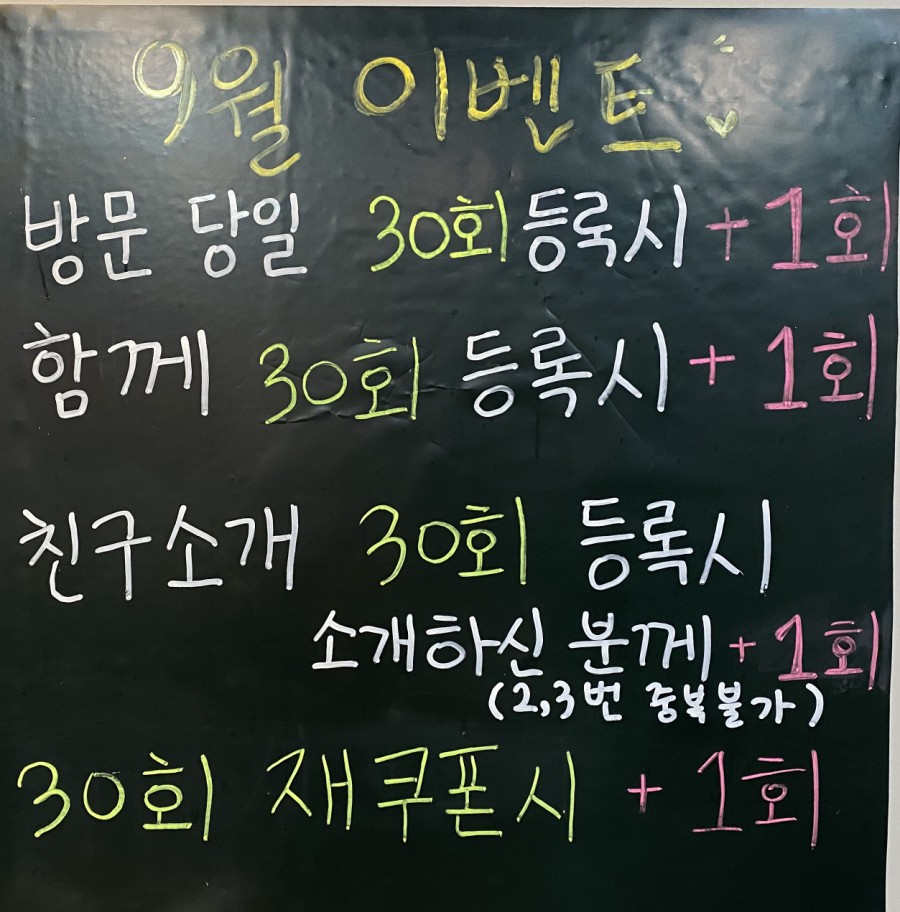 9월 이벤트
방문 당일 30회 등록시 + 1회
함께 30회 등록시 + 1회
친구소개 30회 등록시
소개하신 분께 + 1회
(2,3번 중복불가)
30회 재쿠폰시 + 1회